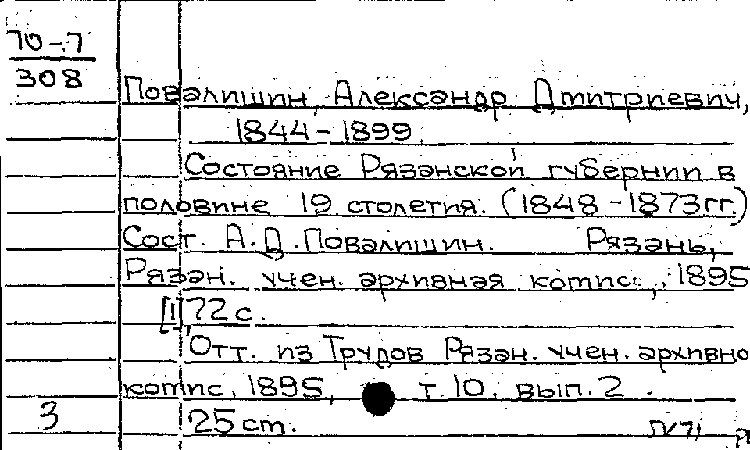 70-7
308
Повалишин, Александр Дмитриевич,
1844-1899.
Состояние Рязанской губернии в
половине 19 столетия. (1848-1873гг.)
Сост. А.Д. Повалишин. Рязань,
Рязан. учен. архивная комис., 1895
[1],72 с.
Отт. из Трудов Рязан. учен. архивно
комис. 1895, т.10. вып. 2.
3 25 см.